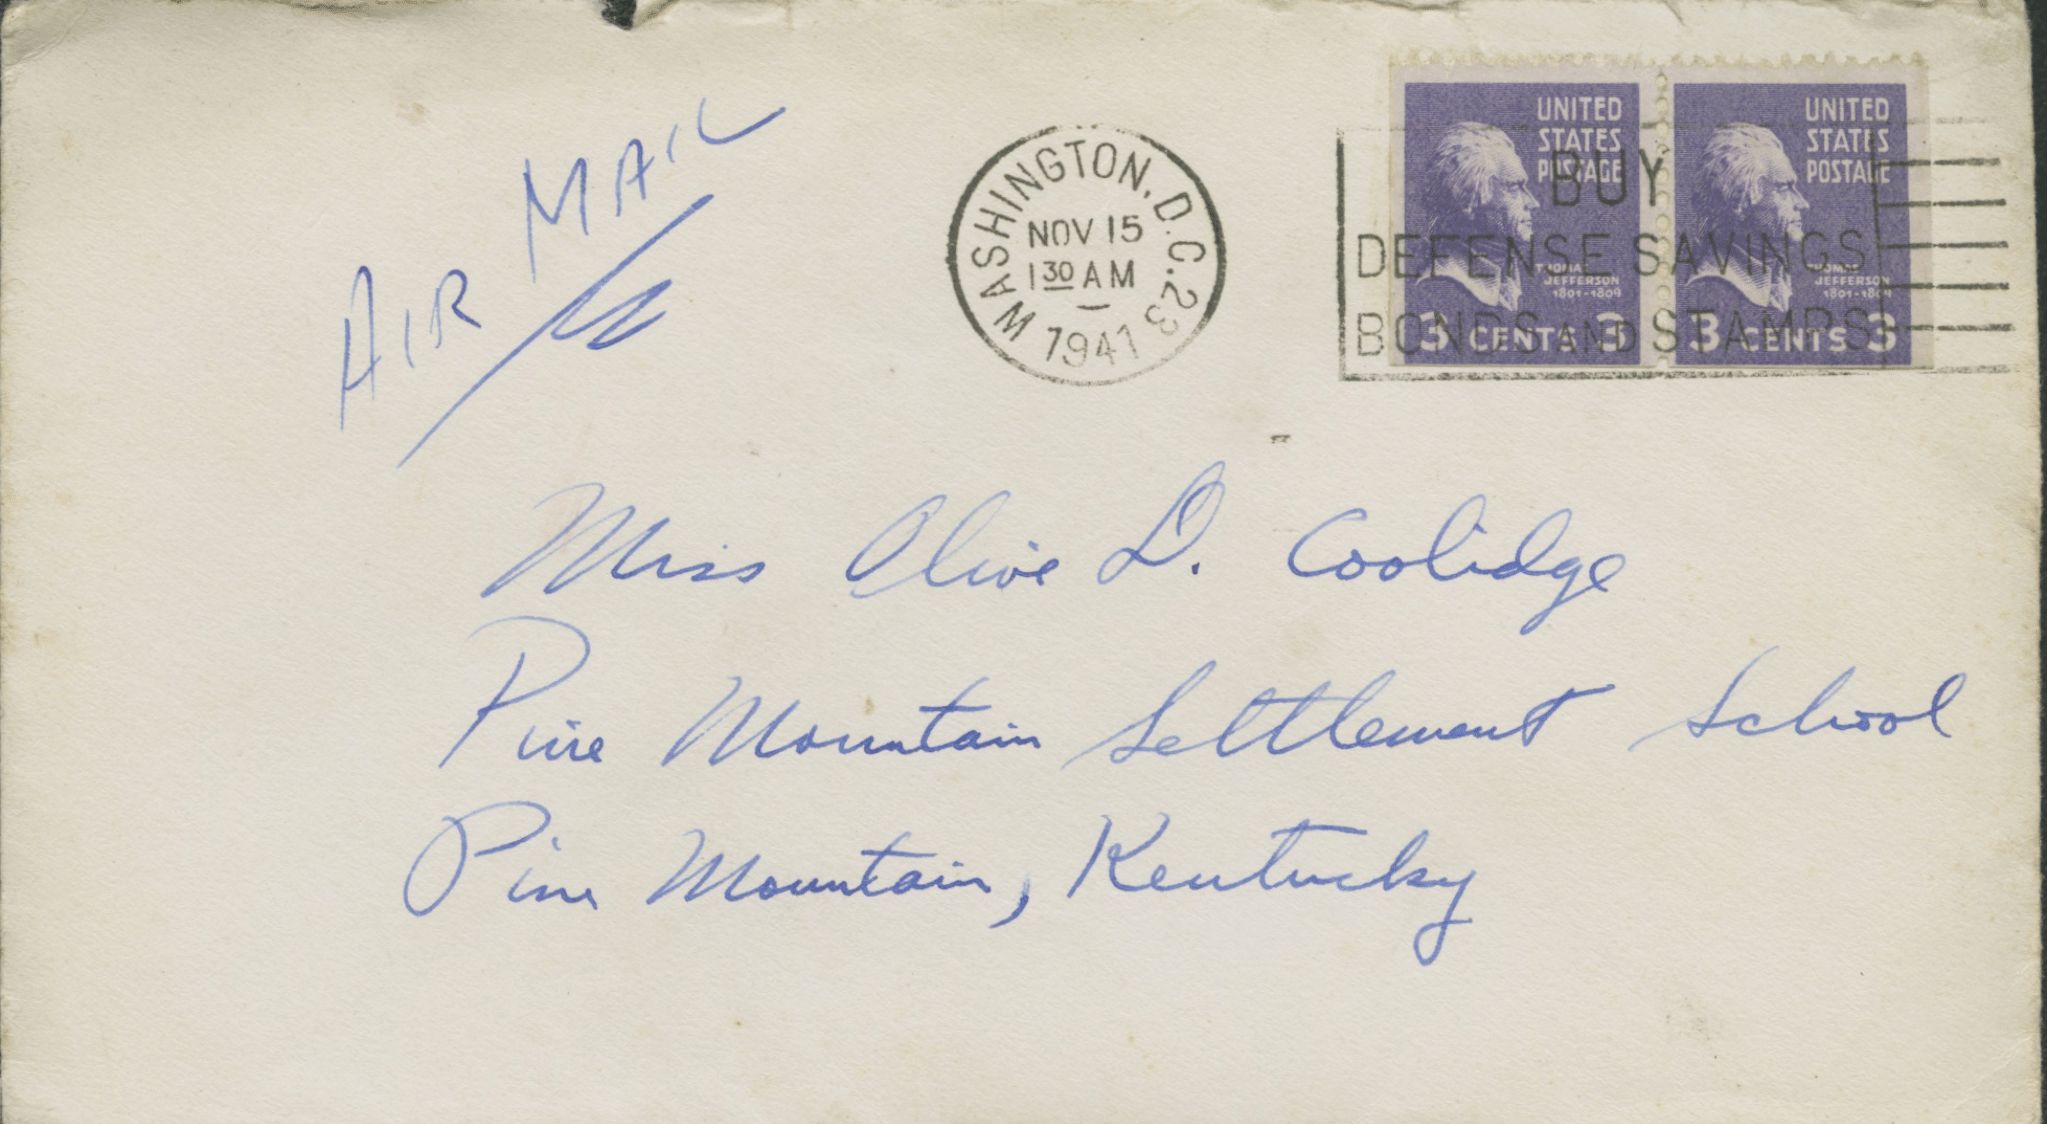 AIR MAIL
WASHINGTON, D.C. 23
NOV 15
1 30 AM
1941
UNITED STATES POSTAGE
THOMAS JEFFERSON
1801-1809
3 CENTS 3
UNITED STATES POSTAGE
THOMAS JEFFERSON
1801-1809
3 CENTS 3
BUY
DEFENSE SAVINGS
BONDS AND STAMPS
Miss Olive D. Coolidge
Pine Mountain Settlement School
Pine Mountain, Kentucky